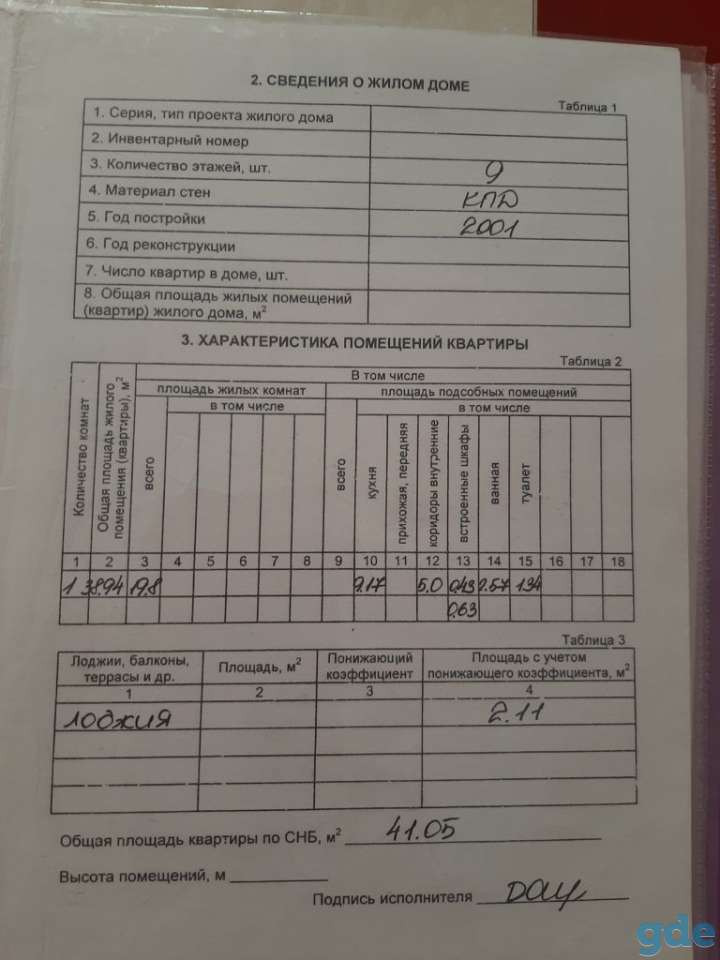 2. СВЕДЕНИЯ О ЖИЛОМ ДОМЕ
Таблица 1
1. Серия, тип проекта жилого дома
2. Инвентарный номер
3. Количество этажей, шт. 9
4. Материал стен КПД
5. Год постройки 2001
6. Год реконструкции
7. Число квартир в доме, шт.
8. Общая площадь жилых помещений
(квартир) жилого дома, м²
3. ХАРАКТЕРИСТИКА ПОМЕЩЕНИЙ КВАРТИРЫ
Таблица 2
Количество комнат
Общая площадь жилого
помещения (квартиры), м²
В том числе
площадь жилых комнат
площадь подсобных помещений
в том числе
в том числе
всего
всего
кухня
прихожая, передняя
коридоры внутренние
встроенные шкафы
ванная
туалет
1 2 3 4 5 6 7 8 9 10 11 12 13 14 15 16 17 18
1 38.94 19.8 9.17 5.0 0.43 2.57 1.34
0.63
Таблица 3
Лоджии, балконы,
террасы и др.
Площадь, м²
Понижающий
коэффициент
Площадь с учетом
понижающего коэффициента, м²
1 2 3 4
лоджия 2.11
Общая площадь квартиры по СНБ, м² 41.05
Высота помещений, м
Подпись исполнителя
gde